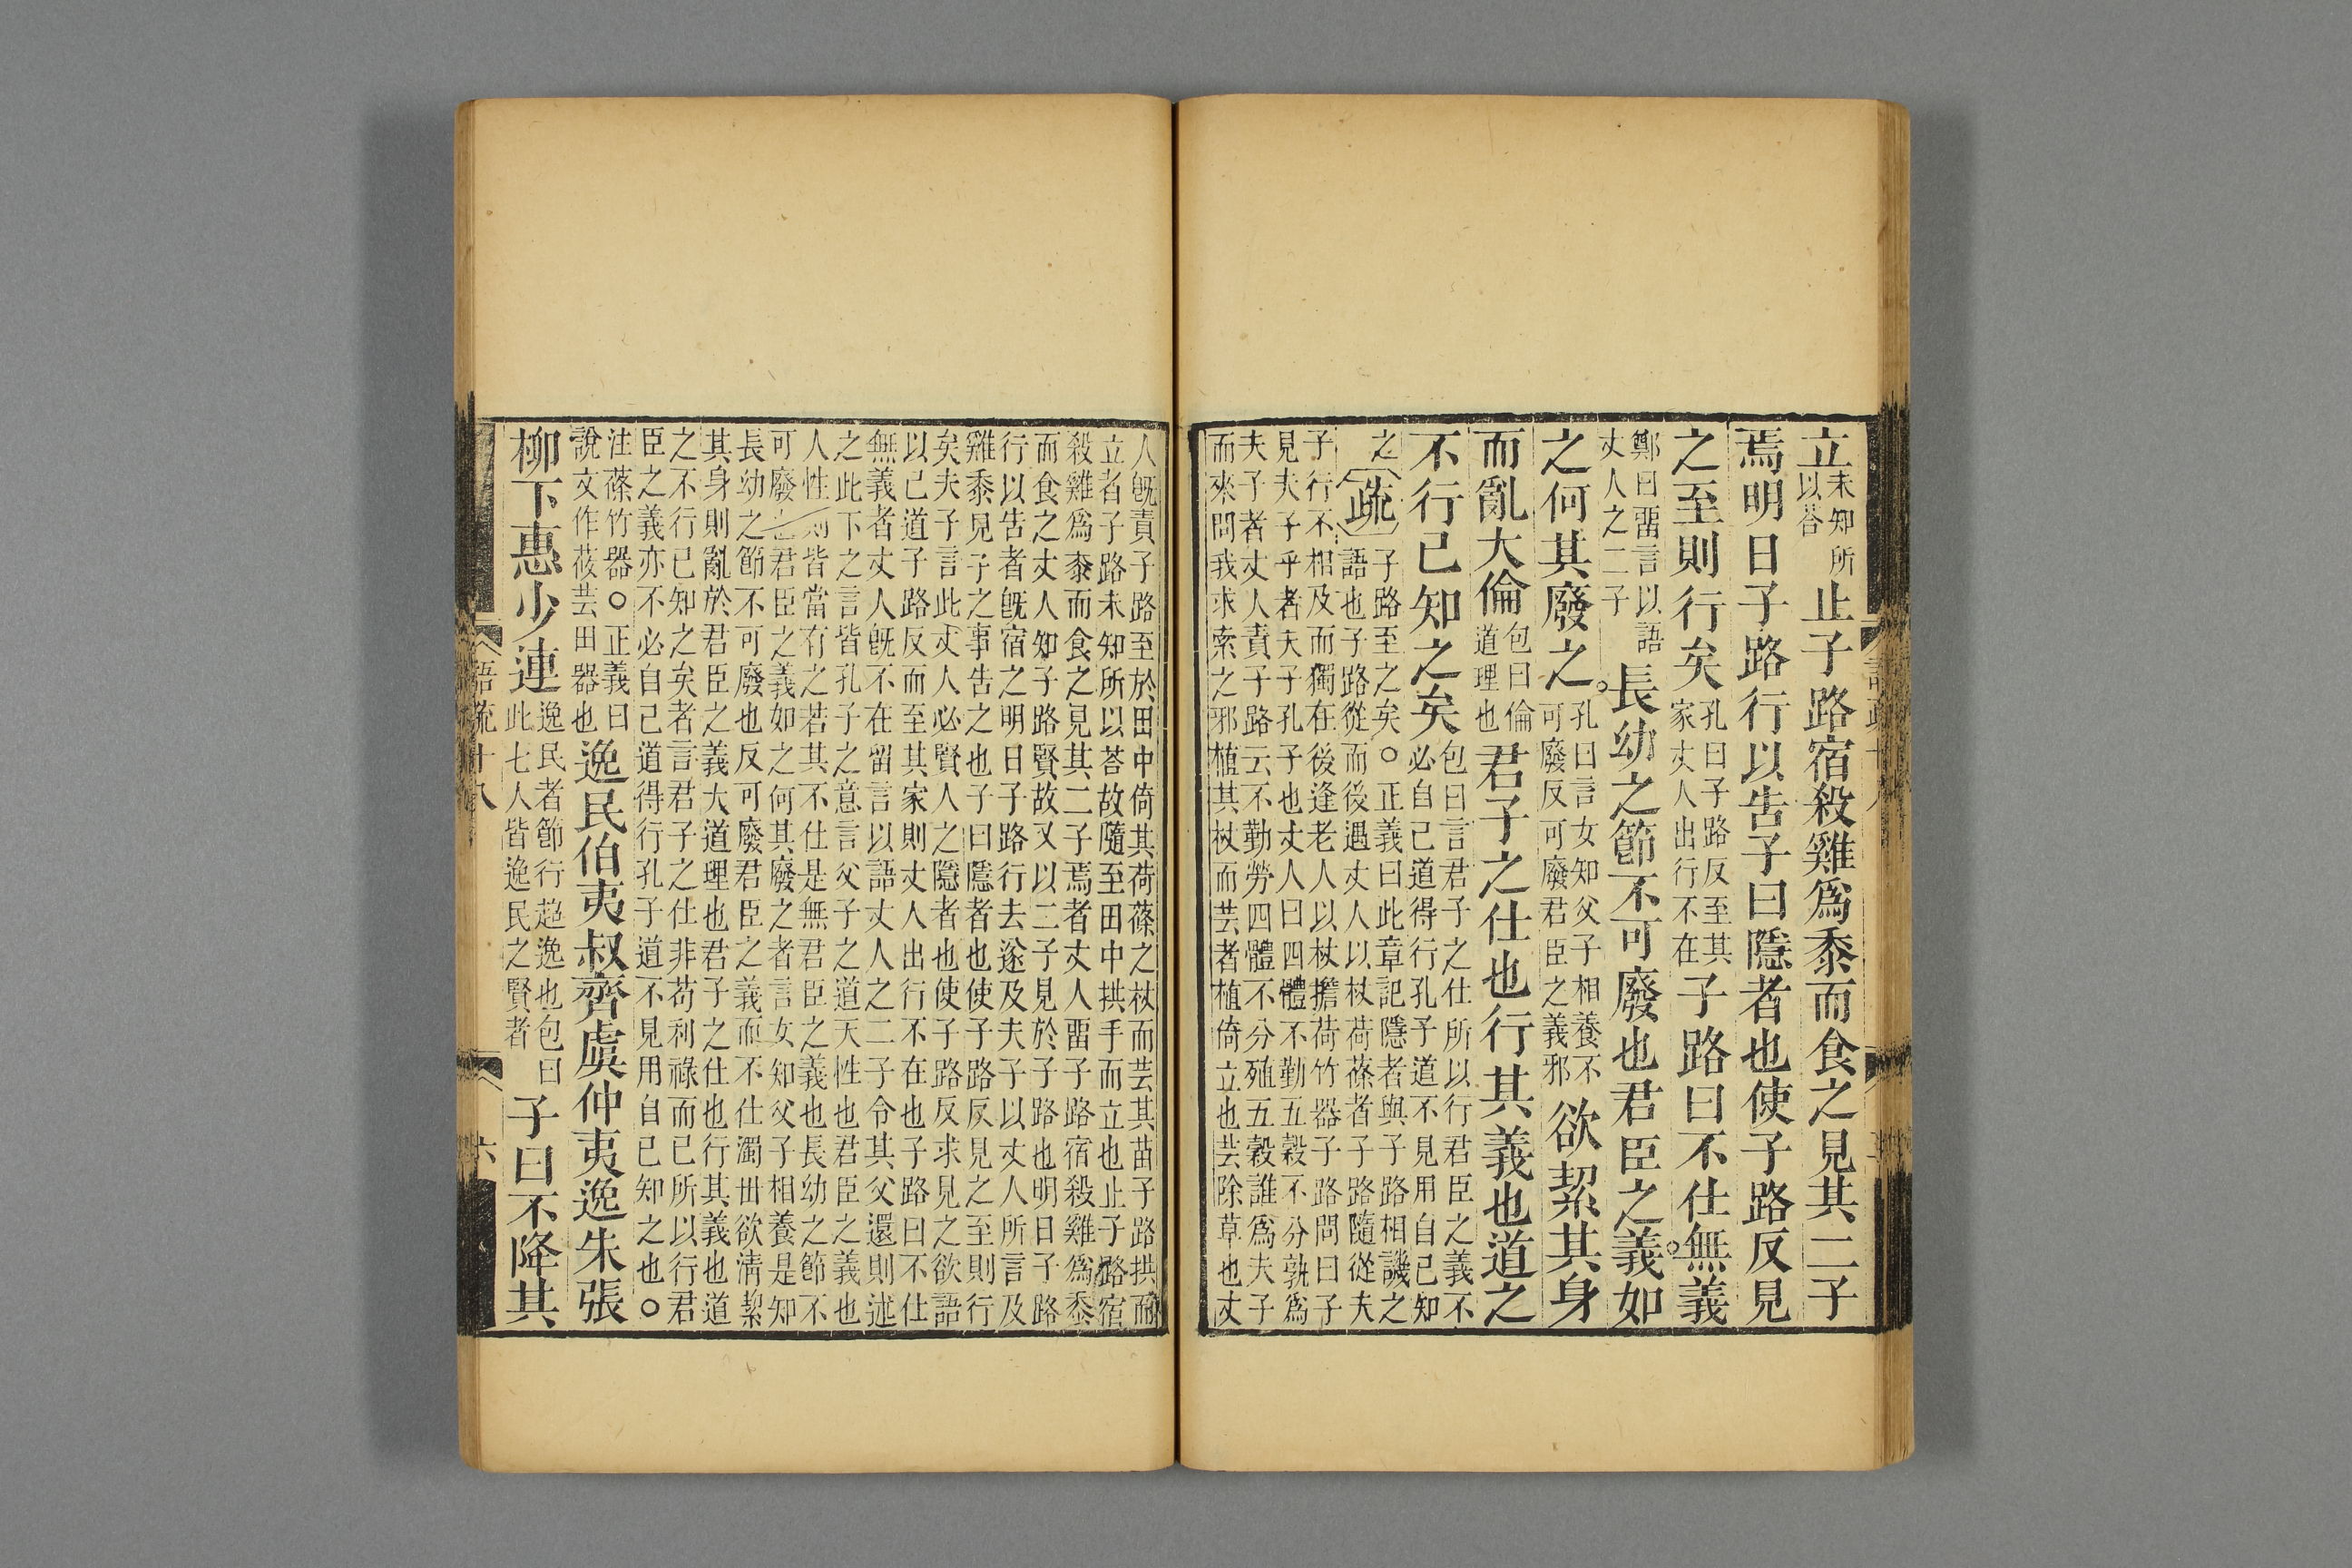 立未知所以荅止子路宿殺雞爲黍而食之見其二子
焉明日子路行以告子曰隱者也使子路反見
之至則行矣孔曰子路反至其家丈人出行不在子路曰不仕無義
鄭曰畱言以語丈人之二子長幼之節不可廢也君臣之義如
之何其廢之孔曰言女知父子相養不可廢反可廢君臣之義邪欲絜其身
而亂大倫包曰倫道理也君子之仕也行其義也道之
不行已知之矣包曰言君子之仕所以行君臣之義不必自己道得行孔子道不見用自已知
之疏子路至之矣○正義曰此章記隱者與子路相譏之
語也子路從而後遇丈人以杖荷蓧者子路隨從夫
子行不相及而獨在後逢老人以杖擔荷竹器子路問曰子
見夫子乎者夫子孔子也丈人曰四體不勤五穀不分孰爲
夫子者丈人責子路云不勤勞四體不分殖五穀誰爲夫子
而來問我求索之邪植其杖而芸者植倚立也芸除草也丈
人旣責子路至於田中倚其荷蓧之杖而芸其苗子路拱而
立者子路未知所以荅故隨至田中拱手而立也止子路宿
殺雞爲黍而食之見其二子焉者丈人畱子路宿殺雞爲黍
而食之丈人知子路賢故又以二子見於子路也明日子路
行以告者旣宿之明日子路行去遂及夫子以丈人所言及
雞黍見子之事告之也子曰隱者也使子路反見之至則行
矣夫子言此丈人必賢人之隱者也使子路反求見之欲語
以己道子路反而至其家則丈人出行不在也子路曰不仕
無義者丈人旣不在留言以語丈人之二子令其父還則述
之此下之言皆孔子之意言父子之道天性也君臣之義也
人性則皆當有之若其不仕是無君臣之義也長幼之節不
可廢也君臣之義如之何其廢之者言女知父子相養是知
長幼之節不可廢也反可廢君臣之義而不仕濁世欲淸絜
其身則亂於君臣之義大道理也君子之仕也行其義也道
之不行已知之矣者言君子之仕非苟利祿而已所以行君
臣之義亦不必自己道得行孔子道不見用自已知之也○
注蓧竹器○正義曰
說文作莜芸田器也逸民伯夷叔齊虞仲夷逸朱張
柳下惠少連逸民者節行超逸也包曰此七人皆逸民之賢者子曰不降其
語疏十八
六